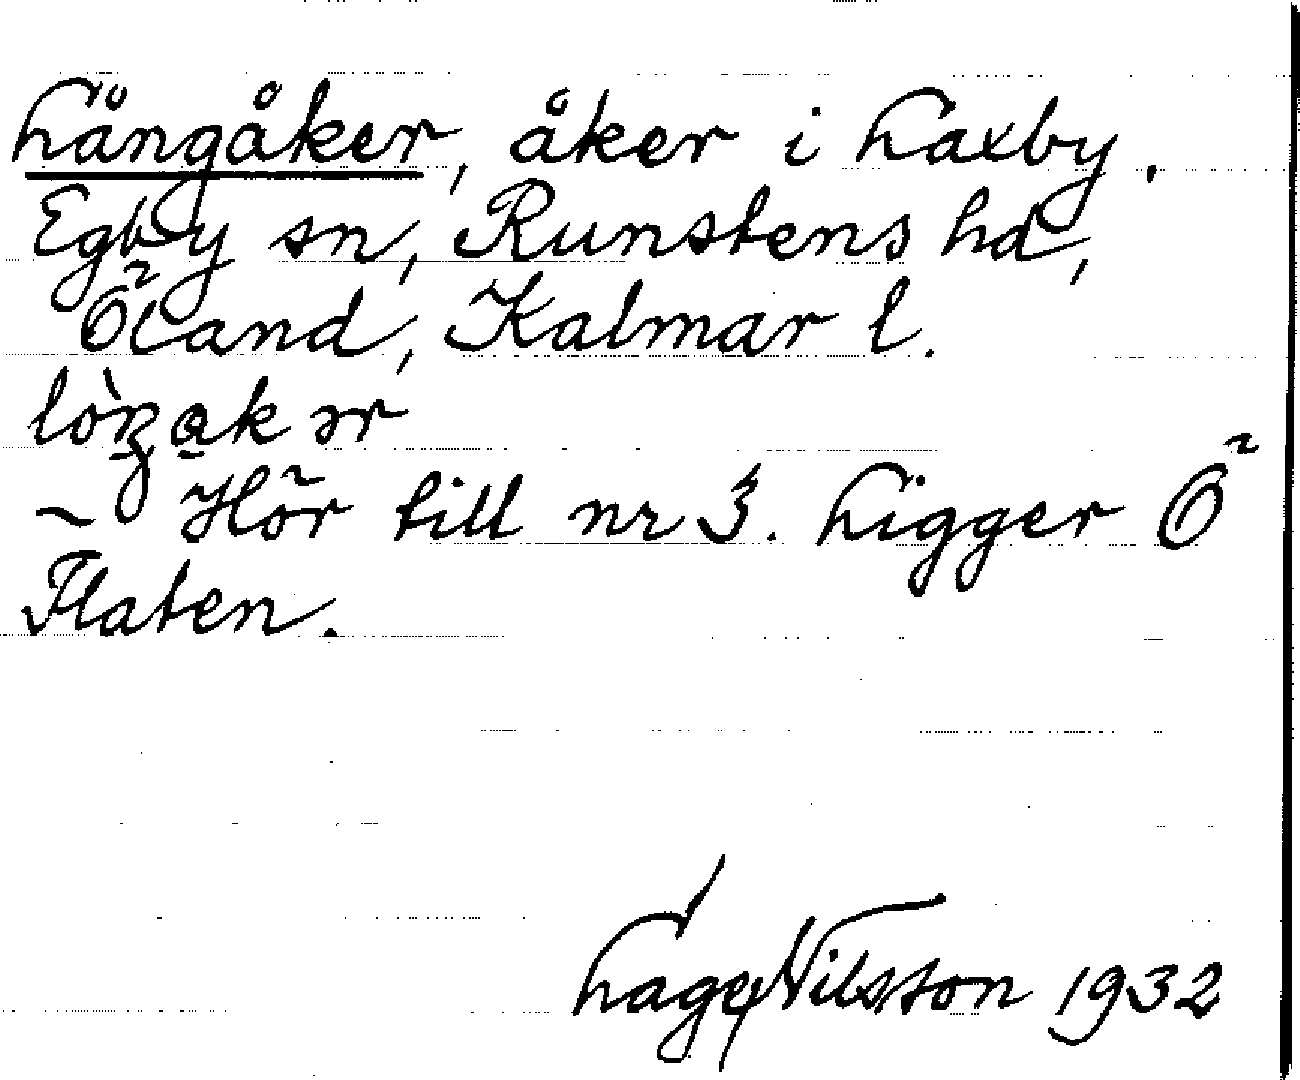 Långåker, åker i Laxby.
Egby sn, Runstens hd,
Öland, Kalmar l.
lòŋạkər
~ Hör till nr 3. Ligger Ö
Flaten.
Lage Nilsson 1932